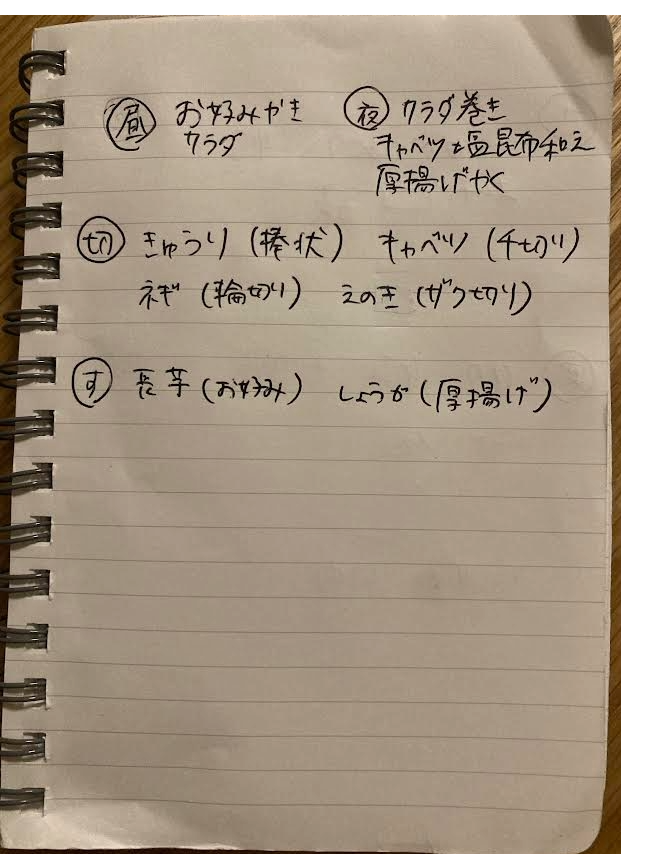 昼 お好みやき
サラダ
夜 サラダ巻き
キャベツと塩昆布和え
厚揚げやく
切 きゅうり(棒状) キャベツ(千切り)
ネギ(輪切り) えのき(ザク切り)
す 長芋(お好み) しょうが(厚揚げ)